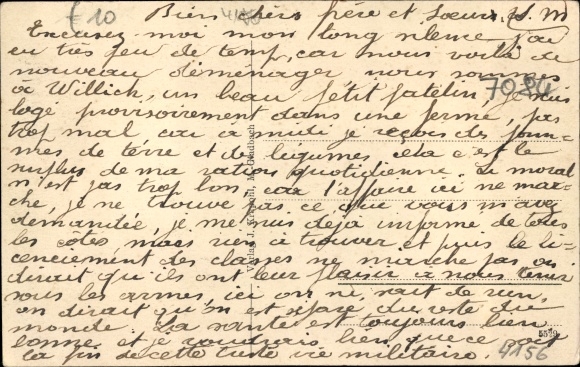 £10
4180
Bien chers frère et soeur, S. M
Excusez moi mon long silence j'ai
eu très peu de temp, car nous voilà de
nouveau déménager nous sommes
à Willich, un beau petit patelin, je suis
7084
logé provisoirement dans une ferme, pas
trop mal car a midi je reçois des pom-
mes de terre et des légumes cela c'est le
surplus de ma ration quotidienne. Le moral
n'est pas trop bon, car l'affaire ici ne mar-
che, je ne trouve pas ce que vous m'avez
demandée, je me suis déjà informé de tous
les cotés, mais rien a trouver et puis le li-
cenciement des classes ne marche pas on
dirait qu'ils ont leur plaisir a nous tenir
sous les armes, ici on ne sait de rien,
on dirait qu'on est du reste du
monde. La santé est toujours bien
bonne et je voudrais bien que ce soit
la fin de cette triste vie militaire.
4156
5529
Verlag J. Gladbach